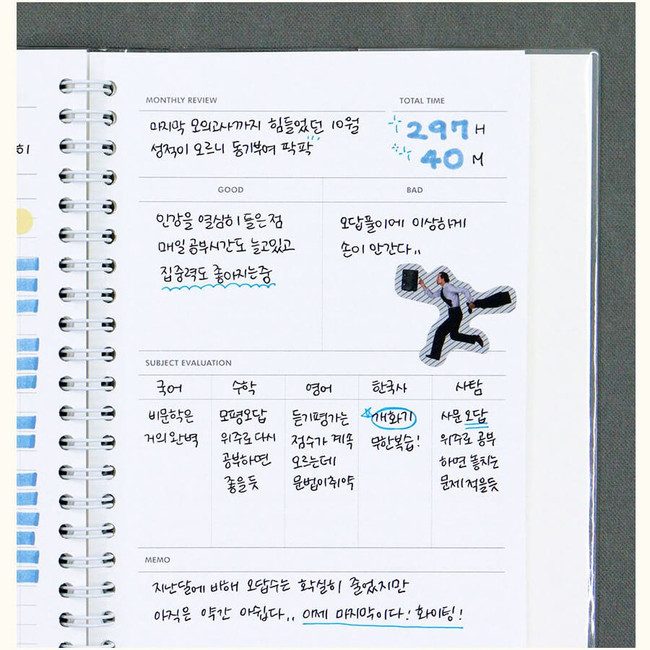 히
MONTHLY REVIEW
마지막 모의고사까지 힘들었던 10월
성적이 오르니 동기부여 팍팍
TOTAL TIME
297 H
40 M
GOOD
인강을 열심히 들은 점
매일 공부시간도 늘고있고
집중력도 좋아지는중
BAD
오답풀이에 이상하게
손이 안간다..
SUBJECT EVALUATION
국어
비문학은
거의 완벽
수학
모평오답
위주로 다시
공부하면
좋을듯
영어
듣기평가는
점수가 계속
오르는데
문법이 취약
한국사
개화기
무한복습!
사탐
사문 오답
위주로 공부
하면 놓치는
문제 적을듯
MEMO
지난달에 비해 오답수는 확실히 줄었지만
아직은 약간 아쉽다.. 이제 마지막이다! 화이팅!